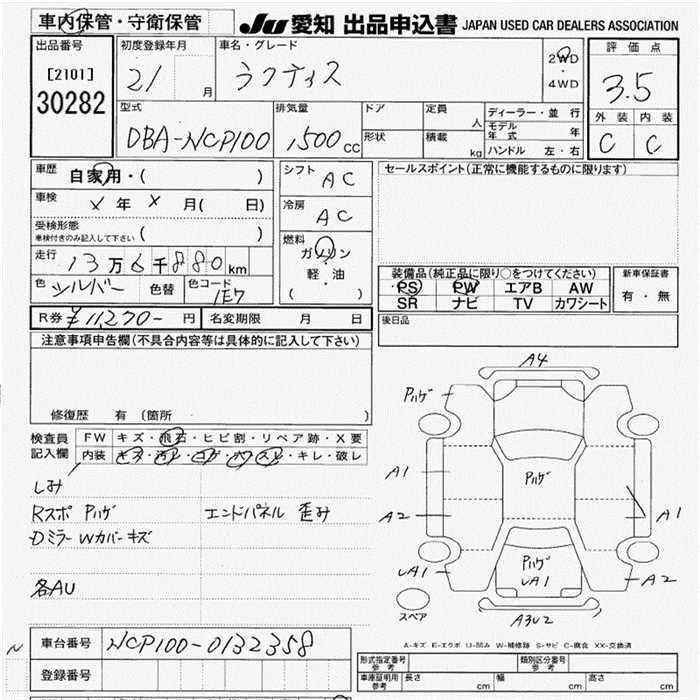 車内保管・守衛保管
JU 愛知 出品申込書 JAPAN USED CAR DEALERS ASSOCIATION
出品番号
[2101]
30282
初度登録年月
21 月
車名・グレード
ラクティス
2WD
・
4WD
評価点
3.5
外装 内装
C C
型式
DBA-NCP100
排気量
1,500 CC
ドア
形状
定員 人
積載 kg
ディーラー・並行
モデル年式 年
ハンドル 左・右
車歴
自家用・( )
車検
X 年 X 月( 日)
受検形態
車検付きのみ記入して下さい ( )
走行
13万6千880km
色 シルバー 色替 色コード 1E7
シフト AC
冷房 AC
燃料
ガソリン
軽・油
( )
セールスポイント(正常に機能するものに限ります)
装備品(純正品に限り○をつけてください)
PS PW エアB AW
SR ナビ TV カワシート
新車保証書
有・無
R券 ¥11,270- 円 名変期限 月 日
後日品
注意事項申告欄(不具合内容等は具体的に記入して下さい)
修復歴 有 (箇所 )
検査員記入欄
FW キズ・飛石・ヒビ割・リペア跡・X要
内装 キズ・汚レ・コゲ・穴・スレ・キレ・破レ
しみ
Rスポ Pハゲ エンドパネル 歪み
Dミラー Wカバーキズ
各AU
A4
Pハゲ
A1
Pハゲ
A2
A1
Pハゲ
UA1
UA1
A2
スペア
A3U2
A-キズ E-エクボ U-凹み W-補修跡 S-サビ C-腐食 XX-交換済
N
車台番号 NCP100-0132358
登録番号
形式指定番号 参考 類別区分番号 参考
車庫証明用 参考 長さ cm 幅 cm 高さ cm